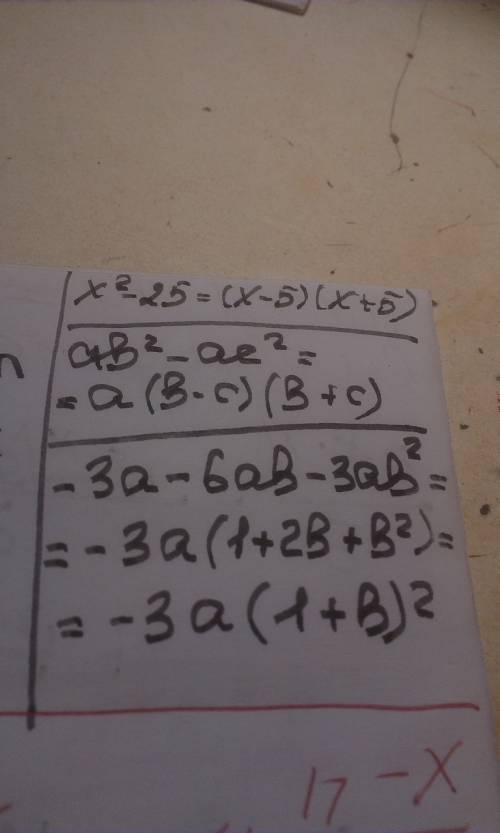 x² - 25 = (x - 5)(x + 5)
aB² - ac² =
= a(B - c)(B + c)
- 3a - 6aB - 3aB² =
= - 3a(1 + 2B + B²) =
= - 3a(1 + B)²
17 - x